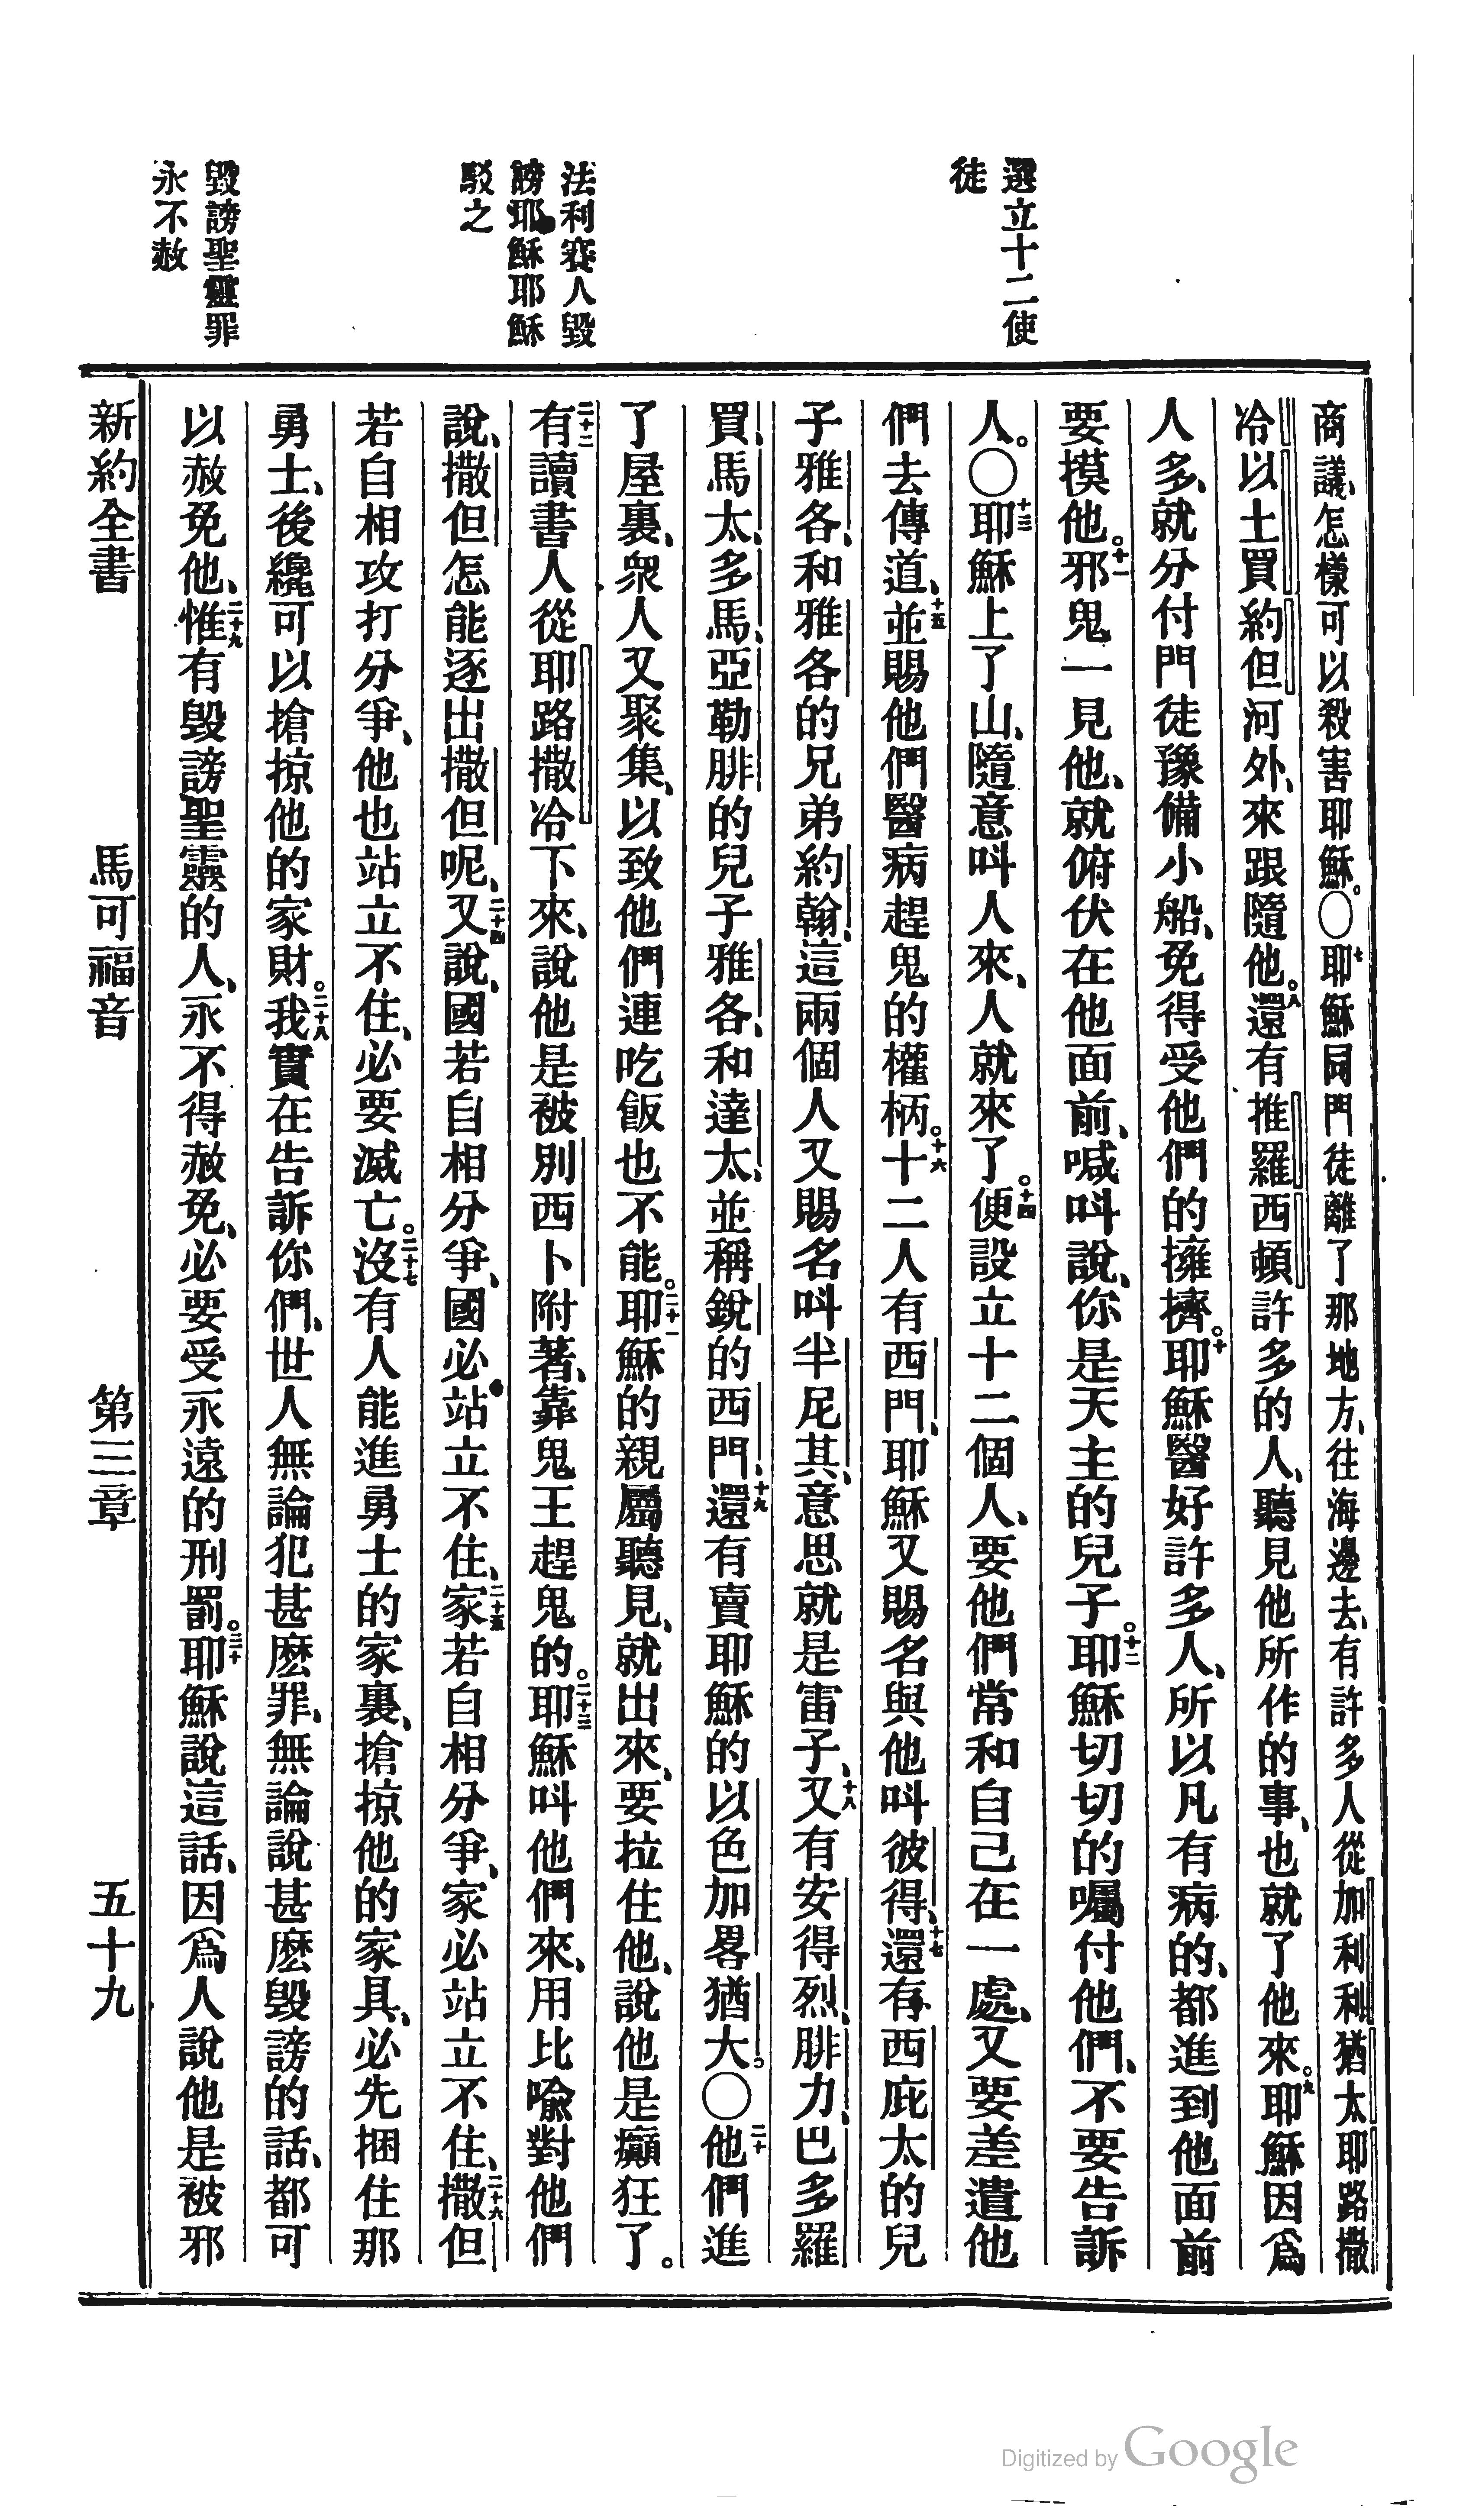 選立十二使
徒
法利賽人毀
謗耶穌耶穌
駁之
毀謗聖靈罪
永不赦
商議、怎樣可以殺害耶穌。○七耶穌同門徒離了那地方、往海邊去、有許多人從加利利猶太耶路撒
冷以土買約但河外、來跟隨他。八還有推羅西頓許多的人、聽見他所作的事、也就了他來。九耶穌因爲
人多、就分付門徒豫備小船、免得受他們的擁擠。十耶穌醫好許多人、所以凡有病的、都進到他面前
要摸他。十一邪鬼一見他、就俯伏在他面前、喊呌說、你是天主的兒子。十二耶穌切切的囑付他們、不要告訴
人。○十三耶穌上了山、隨意呌人來、人就來了。十四便設立十二個人、要他們常和自己在一處、又要差遣他
們去傳道、十五並賜他們醫病趕鬼的權柄。十六十二人有西門、耶穌又賜名與他呌彼得、十七還有西庇太的兒
子雅各、和雅各的兄弟約翰、這兩個人又賜名呌半尼其、意思就是雷子、十八又有安得烈、腓力、巴多羅
買、馬太、多馬、亞勒腓的兒子雅各、和達太、並稱銳的西門、十九還有賣耶穌的以色加畧猶大。○二十他們進
了屋裏、衆人又聚集、以致他們連吃飯也不能。二十一耶穌的親屬聽見、就出來、要拉住他、說他是癲狂了。
二十二有讀書人從耶路撒冷下來、說他是被別西卜附著、靠鬼王趕鬼的。二十三耶穌呌他們來、用比喩對他們
說、撒但怎能逐出撒但呢、二十四又說、國若自相分爭、國必站立不住、二十五家若自相分爭、家必站立不住、二十六撒但
若自相攻打分爭、他也站立不住、必要滅亡。二十七沒有人能進勇士的家裏、搶掠他的家具、必先捆住那
勇士、後纔可以搶掠他的家財。二十八我實在告訴你們、世人無論犯甚麽罪、無論說甚麽毀謗的話、都可
以赦免他、二十九惟有毀謗聖靈的人、永不得赦免、必要受永遠的刑罰。三十耶穌說這話、因爲人說他是被邪
新約全書 馬可福音 第三章 五十九
Digitized by Google